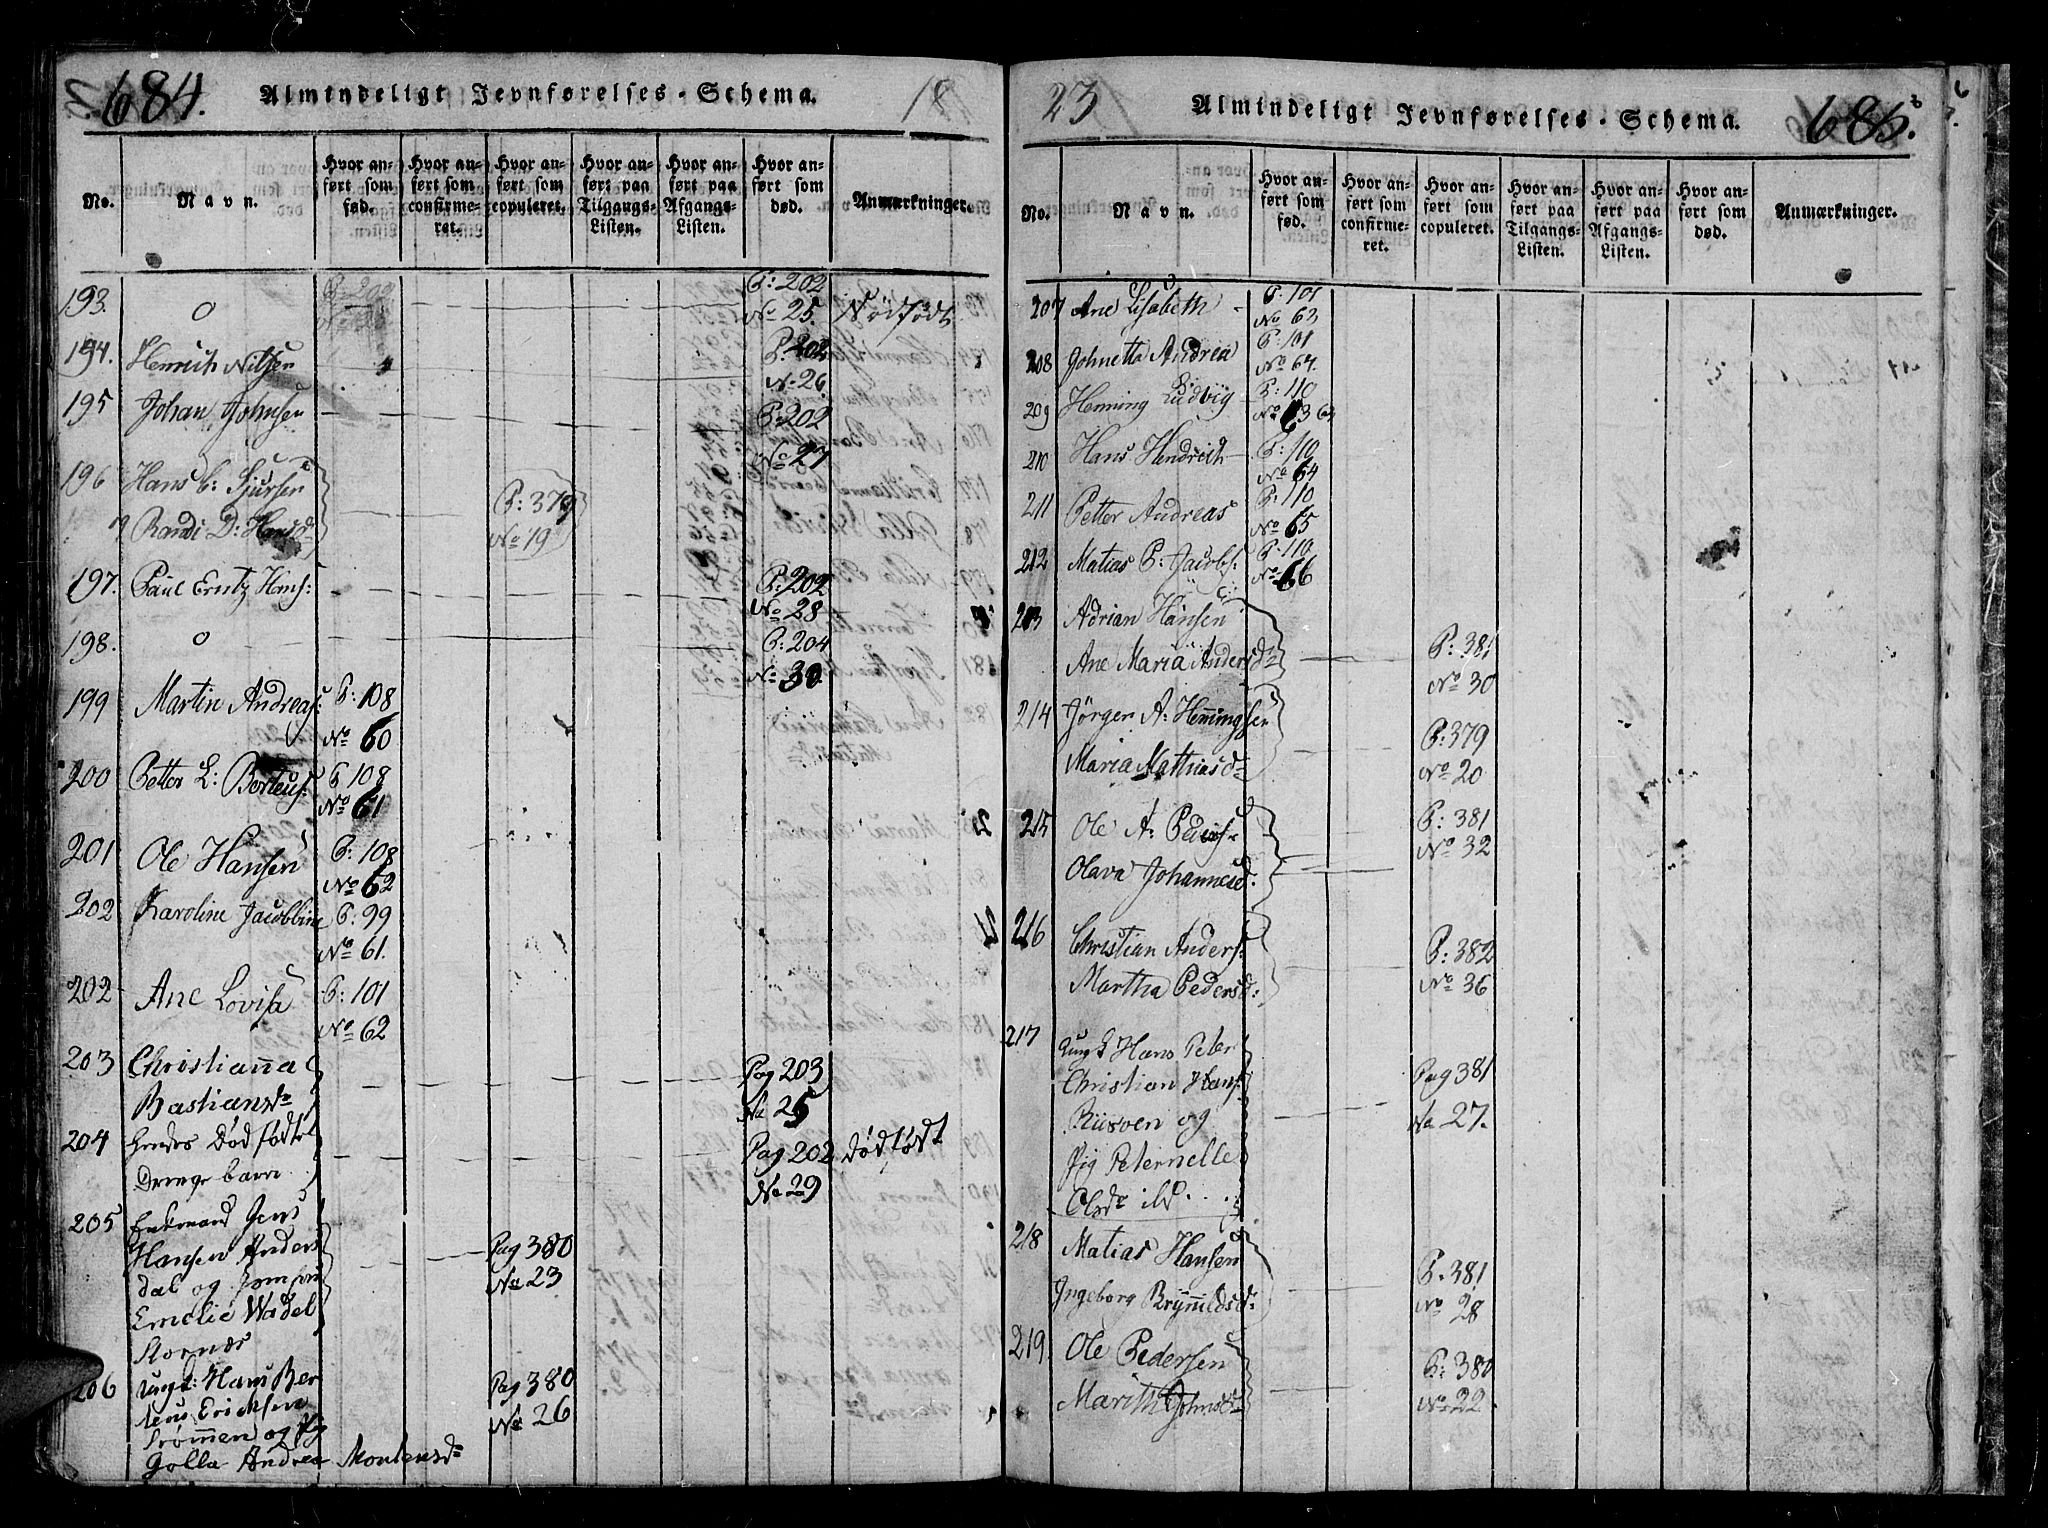 684. Almindeligt Jevnførelses-Schema. 18
No. Navn. Hvor anført som fød. Hvor anført som confirmeret. Hvor anført som copuleret. Hvor anført paa Tilgangs-Listen. Hvor anført paa Afgangs-Listen. Hvor anført som død. Anmærkninger.
193. o P: 202
No 25. Dødfødt
194. Henrich Nilsen P: 202
No 26
195 Johan Johnsen P: 202
No 27
196 Hans C: Sjursen P: 379
Randi D: Hansd No 19
197. Paul Erntz Hans: P: 202
No 28
198. o P: 204
No 30
199 Martin Andreas: P: 108
No 60
200 Petter L: Berteus: P 108
No 61
201 Ole Hansen P: 108
No 62
202 Karoline Jacobbine P: 99
No 61.
202 Ane Lovisa P: 101
No 62
203 Christianna Pag 203
Bastiansdr No 25
204 hendes Dødfødte Pag 202 Dødfødt
Drenge barn No 29
205 Enkemand Jens
Hansen Anders Pag 380
dal og Jomfru No 23
Emelie Wadel
Stornæs
206 Ungk: Hans Ber Pag 380
Erichsen No 26
Strømmen og Pig
Golla Andrea Mortensdr
23 Almindeligt Jevnførelses-Schema. 685.
No. Navn. Hvor anført som fød. Hvor anført som confirmeret. Hvor anført som copuleret. Hvor anført paa Tilgangs-Listen. Hvor anført paa Afgangs-Listen. Hvor anført som død. Anmærkninger.
207 Ane Lisabeth P: 101
No 63
208 Johnetta Andrea P: 101
No 64.
209 Henning Ludvig P: 110
No 63
210 Hans Hendrich P: 110
No 64
211 Petter Andreas P: 110
No 65
212 Matias P: Jacobs: P: 110
No 66
213 Adrian Hansen
Ane Maria Andersdr P: 381
No 30
214 Jörgen A: Hemmingsen P: 379
Maria Mathiasdr No 20
215 Ole A: P: 381
Olava Johannesd. No 32
216 Christian Anders: P: 382
Martha Pedersd: No 36
217 Ungk Hans Peter
Christian Hans: Pag 381
og No 27.
Pig Peternelle
Olsdr
218 Matias Hansen P. 381
Ingeborg Brynnildsd: No 28
219. Ole Pedersen P: 380
Marith Johnsdr No 22.